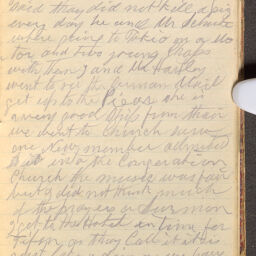 said they did not kill a pig
every day he and Mr
where going to Tokio on a Mo
tor and two young chaps
with them) and Mr Hanley
went to see the German Mail
get up to the Pier she is
a very good ship from than
we went to Church
one New member admitted
but in to the Congeration
Church the music was fair
but I did not think much
of the prayers or Surmon
I get to the Hotel in time for
Tiffin as they Call it it is